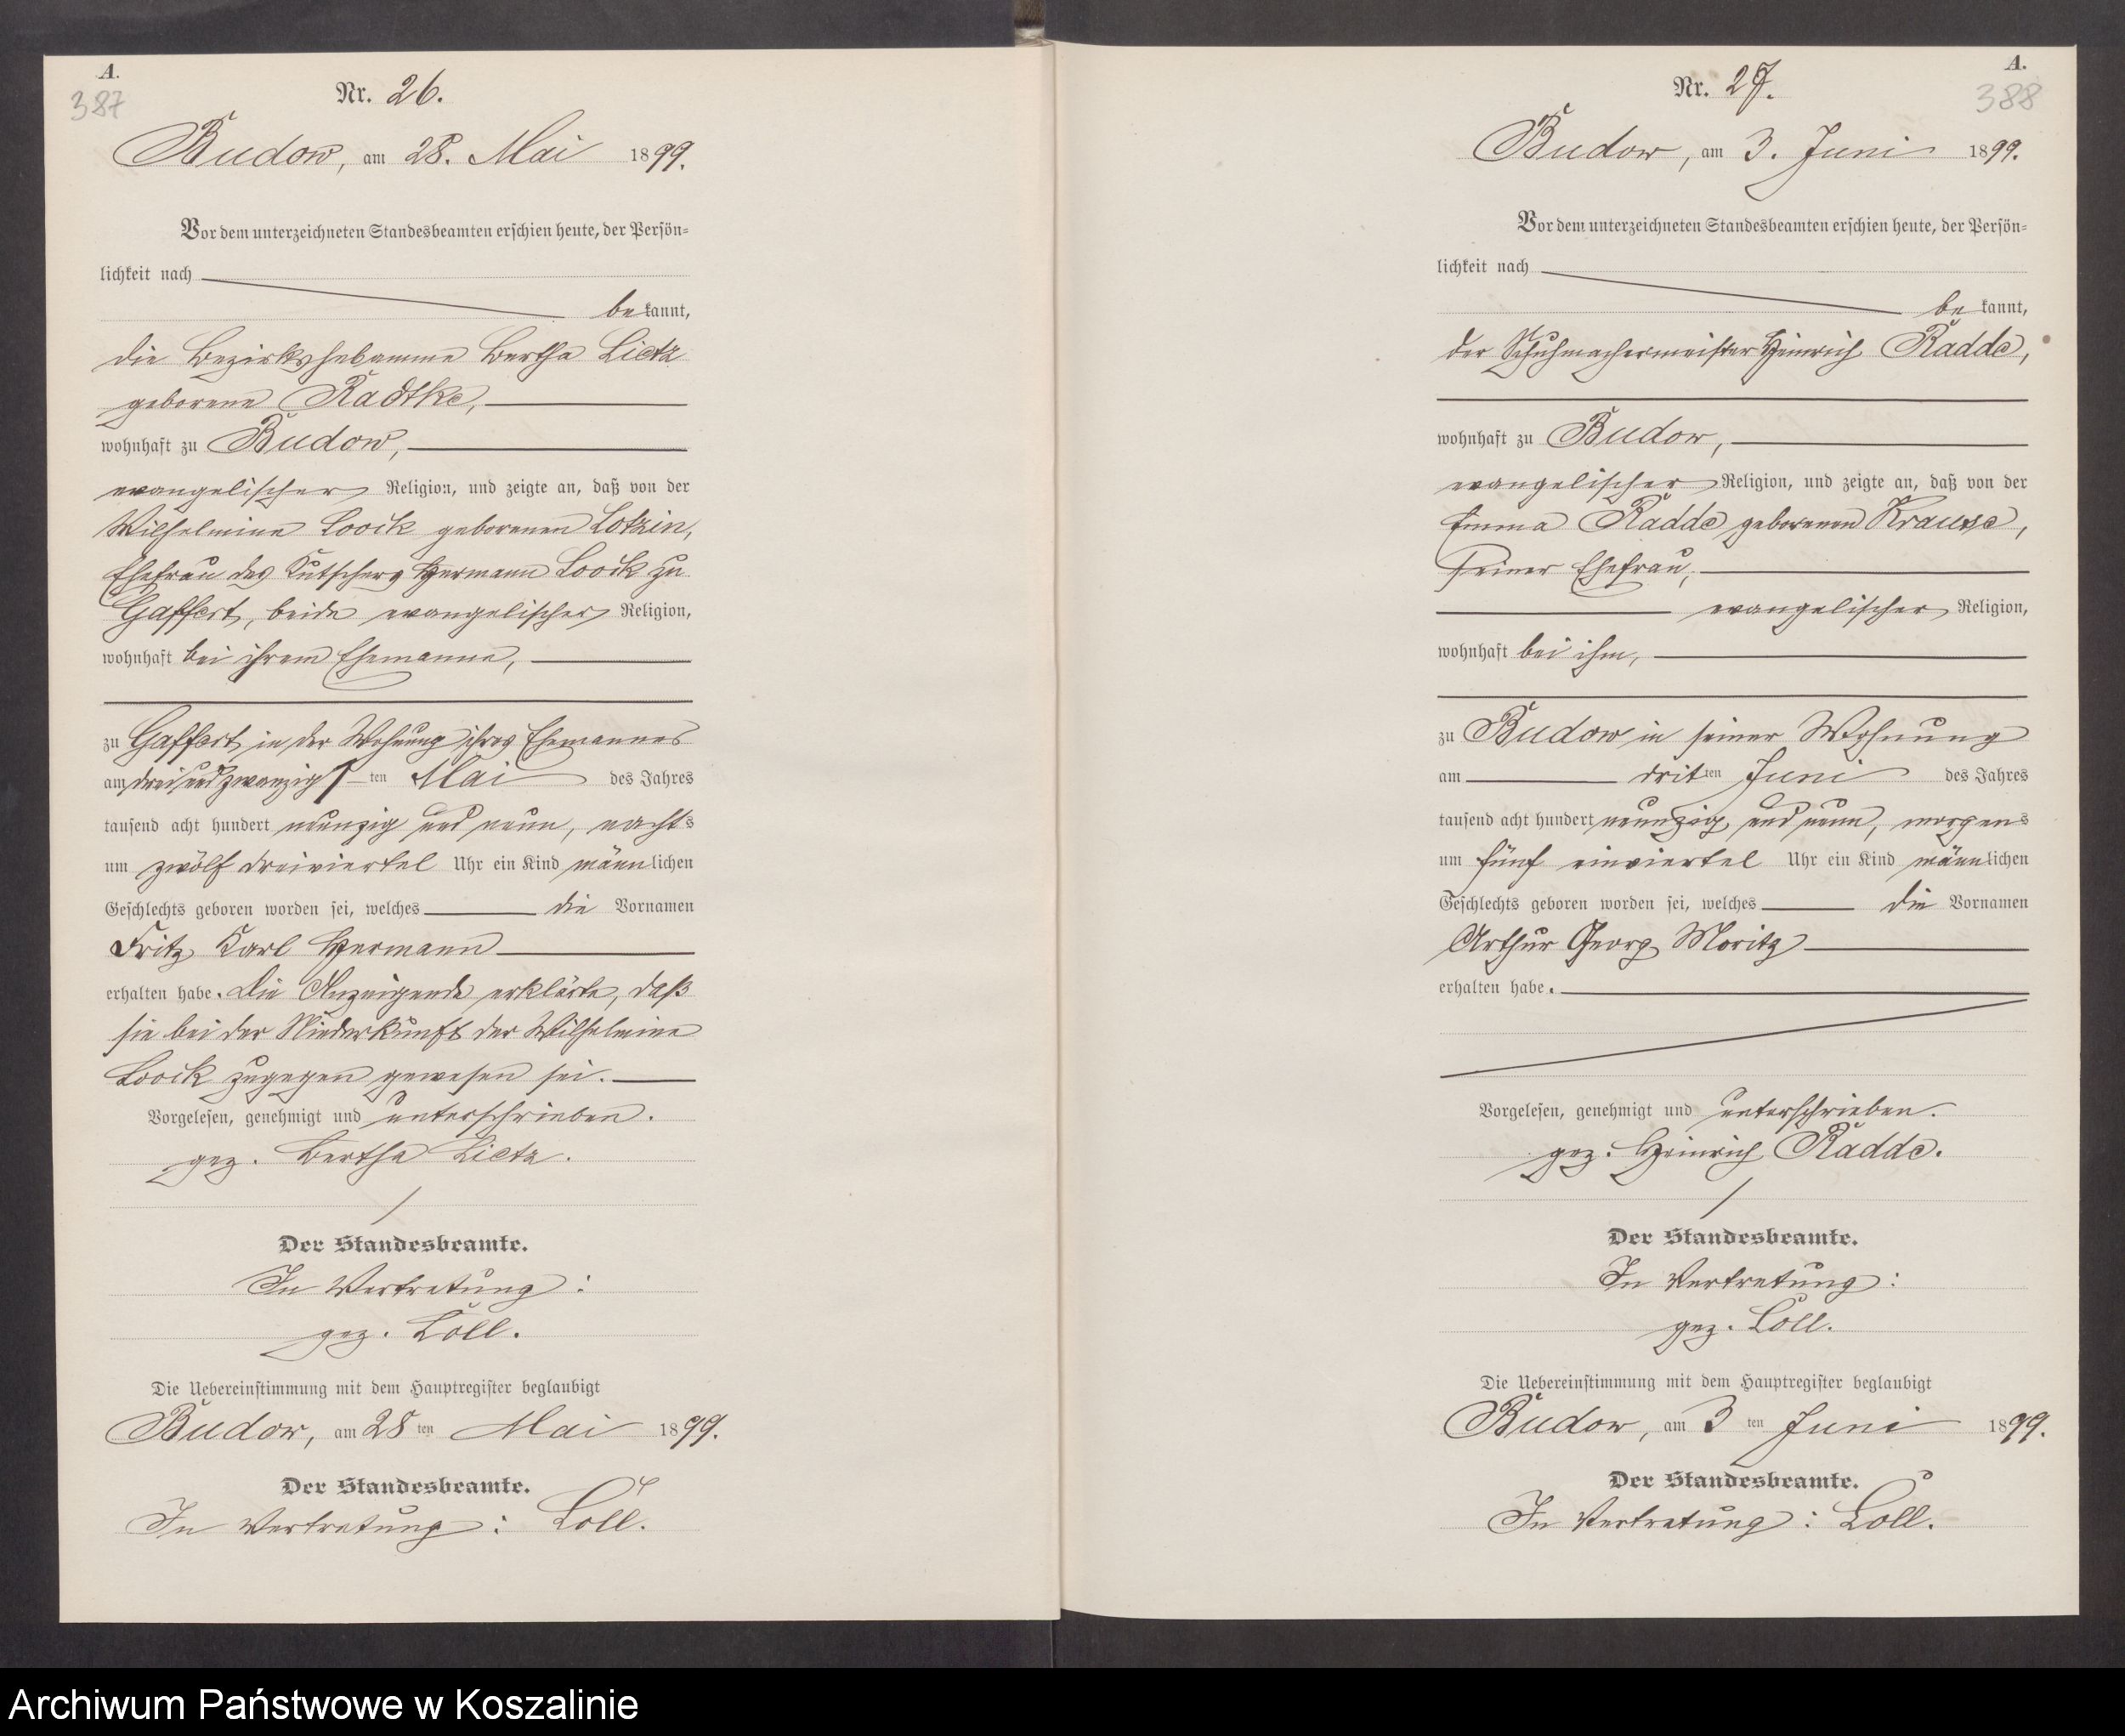 A.
387
Nr. 26.
Budow, am 28. Mai 1899.
Vor dem unterzeichneten Standesbeamten erschien heute, der Persön-
lichkeit nach
bekannt,
die Bezirkshebamme Bertha Lietz
geborene Radtke,
wohnhaft zu Budow,
evangelischer Religion, und zeigte an, daß von der
Wilhelmine Loock geborenen Lotzin,
Ehefrau des Kutschers Hermann Loock zu
Gaffert, beide evangelischer Religion,
wohnhaft bei ihrem Ehemanne,
zu Gaffert in der Wohnung ihres Ehemannes
am dreiundzwanzigsten Mai des Jahres
tausend acht hundert neunzig und neun, nachts
um zwölf dreiviertel Uhr ein Kind männlichen
Geschlechts geboren worden sei, welches die Vornamen
Fritz Karl Hermann
erhalten habe. Die Anzeigende erklärte, daß
sie bei der Niederkunft der Wilhelmine
Loock zugegen gewesen sei.
Vorgelesen, genehmigt und unterschrieben.
gez. Bertha Lietz.
Der Standesbeamte.
In Vertretung:
gez. Loll.
Die Uebereinstimmung mit dem Hauptregister beglaubigt
Budow, am 28ten Mai 1899.
Der Standesbeamte.
In Vertretung: Loll.
A.
388
Nr. 27.
Budow, am 3. Juni 1899.
Vor dem unterzeichneten Standesbeamten erschien heute, der Persön-
lichkeit nach
bekannt,
der Schuhmachermeister Heinrich Radde,
wohnhaft zu Budow,
evangelischer Religion, und zeigte an, daß von der
Emma Radde geborenen Krause,
seiner Ehefrau,
evangelischer Religion,
wohnhaft bei ihm,
zu Budow in seiner Wohnung
am dritten Juni des Jahres
tausend acht hundert neunzig und neun, morgens
um fünf einviertel Uhr ein Kind männlichen
Geschlechts geboren worden sei, welches die Vornamen
Arthur Georg Moritz
erhalten habe.
Vorgelesen, genehmigt und unterschrieben.
gez. Heinrich Radde.
Der Standesbeamte.
In Vertretung:
gez. Loll.
Die Uebereinstimmung mit dem Hauptregister beglaubigt
Budow, am 3ten Juni 1899.
Der Standesbeamte.
In Vertretung: Loll.
Archiwum Państwowe w Koszalinie